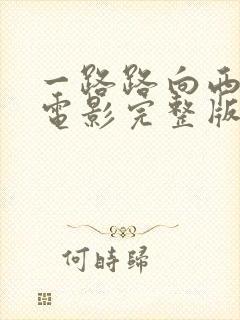 一路路向西
电影完整版
何時歸